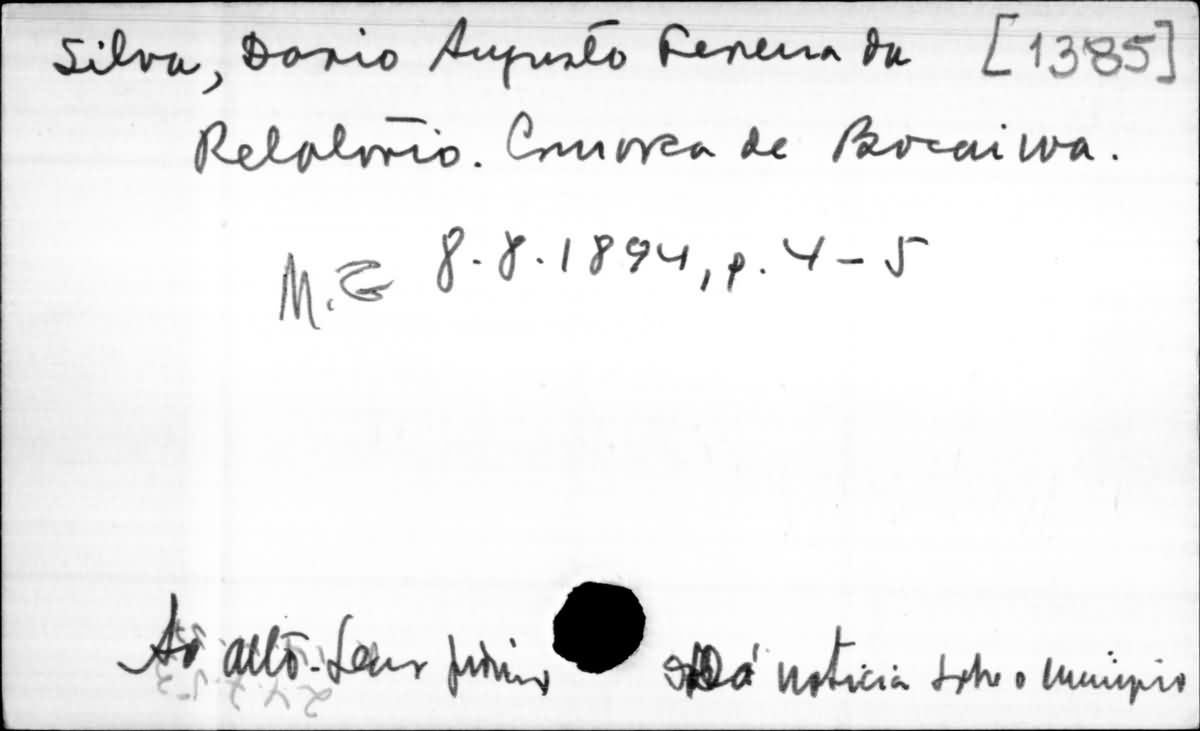 Silva, Dario Augusto Ferreira da [1385]
Relatório. Comarca de Bocaiuva.
M.G 8.8.1894, p. 4-5
Ao alto - Dá noticia sobre o municipio